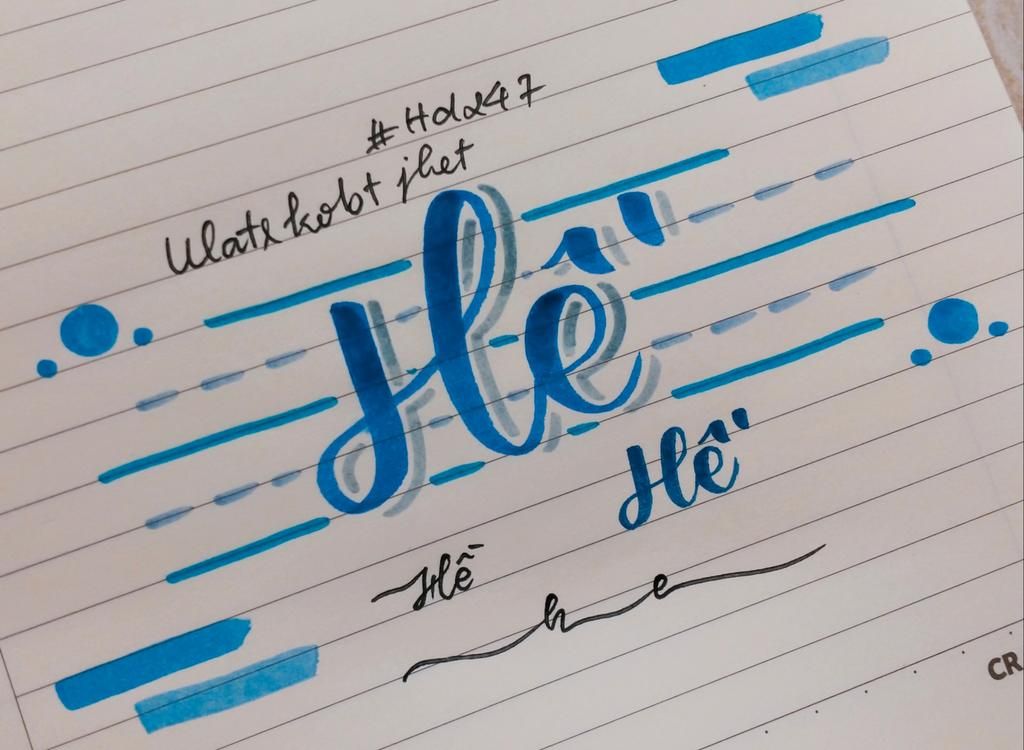 #Hd247
jhet
Hề
Hề
Hề
h e
CR